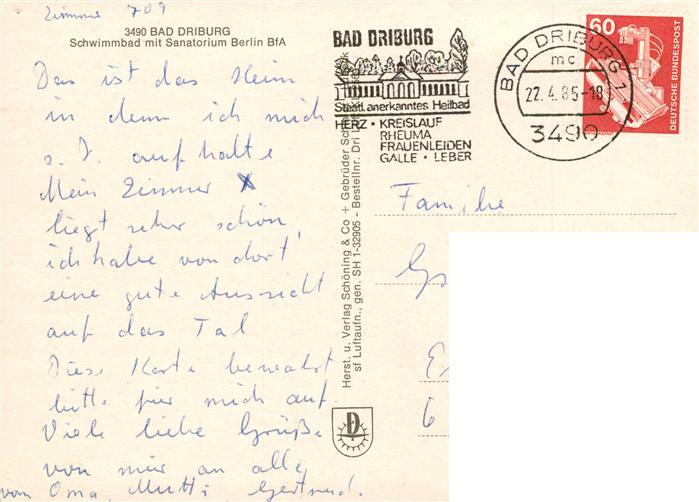 Zimmer 709
3490 BAD DRIBURG
Schwimmbad mit Sanatorium Berlin BfA
Das ist das Heim
in dem ich mich
z. Z. aufhalte
Mein Zimmer X
liegt sehr schön,
ich habe von dort
eine gute Aussicht
auf das Tal
Diese Karte bewahrt
bitte für mich auf.
Viele liebe Grüße
von mir an alle
von Oma, Mutti Gertrud.
Herst. u. Verlag Schöning & Co + Gebrüder Schmidt
sf Luftaufn., gen. SH 1-32905 - Bestellnr. Dri
BAD DRIBURG
Staatl. anerkanntes Heilbad
HERZ • KREISLAUF
RHEUMA
FRAUENLEIDEN
GALLE • LEBER
BAD DRIBURG 1
mc
22.4.85-18
3490
60
DEUTSCHE BUNDESPOST
Familie
6
D